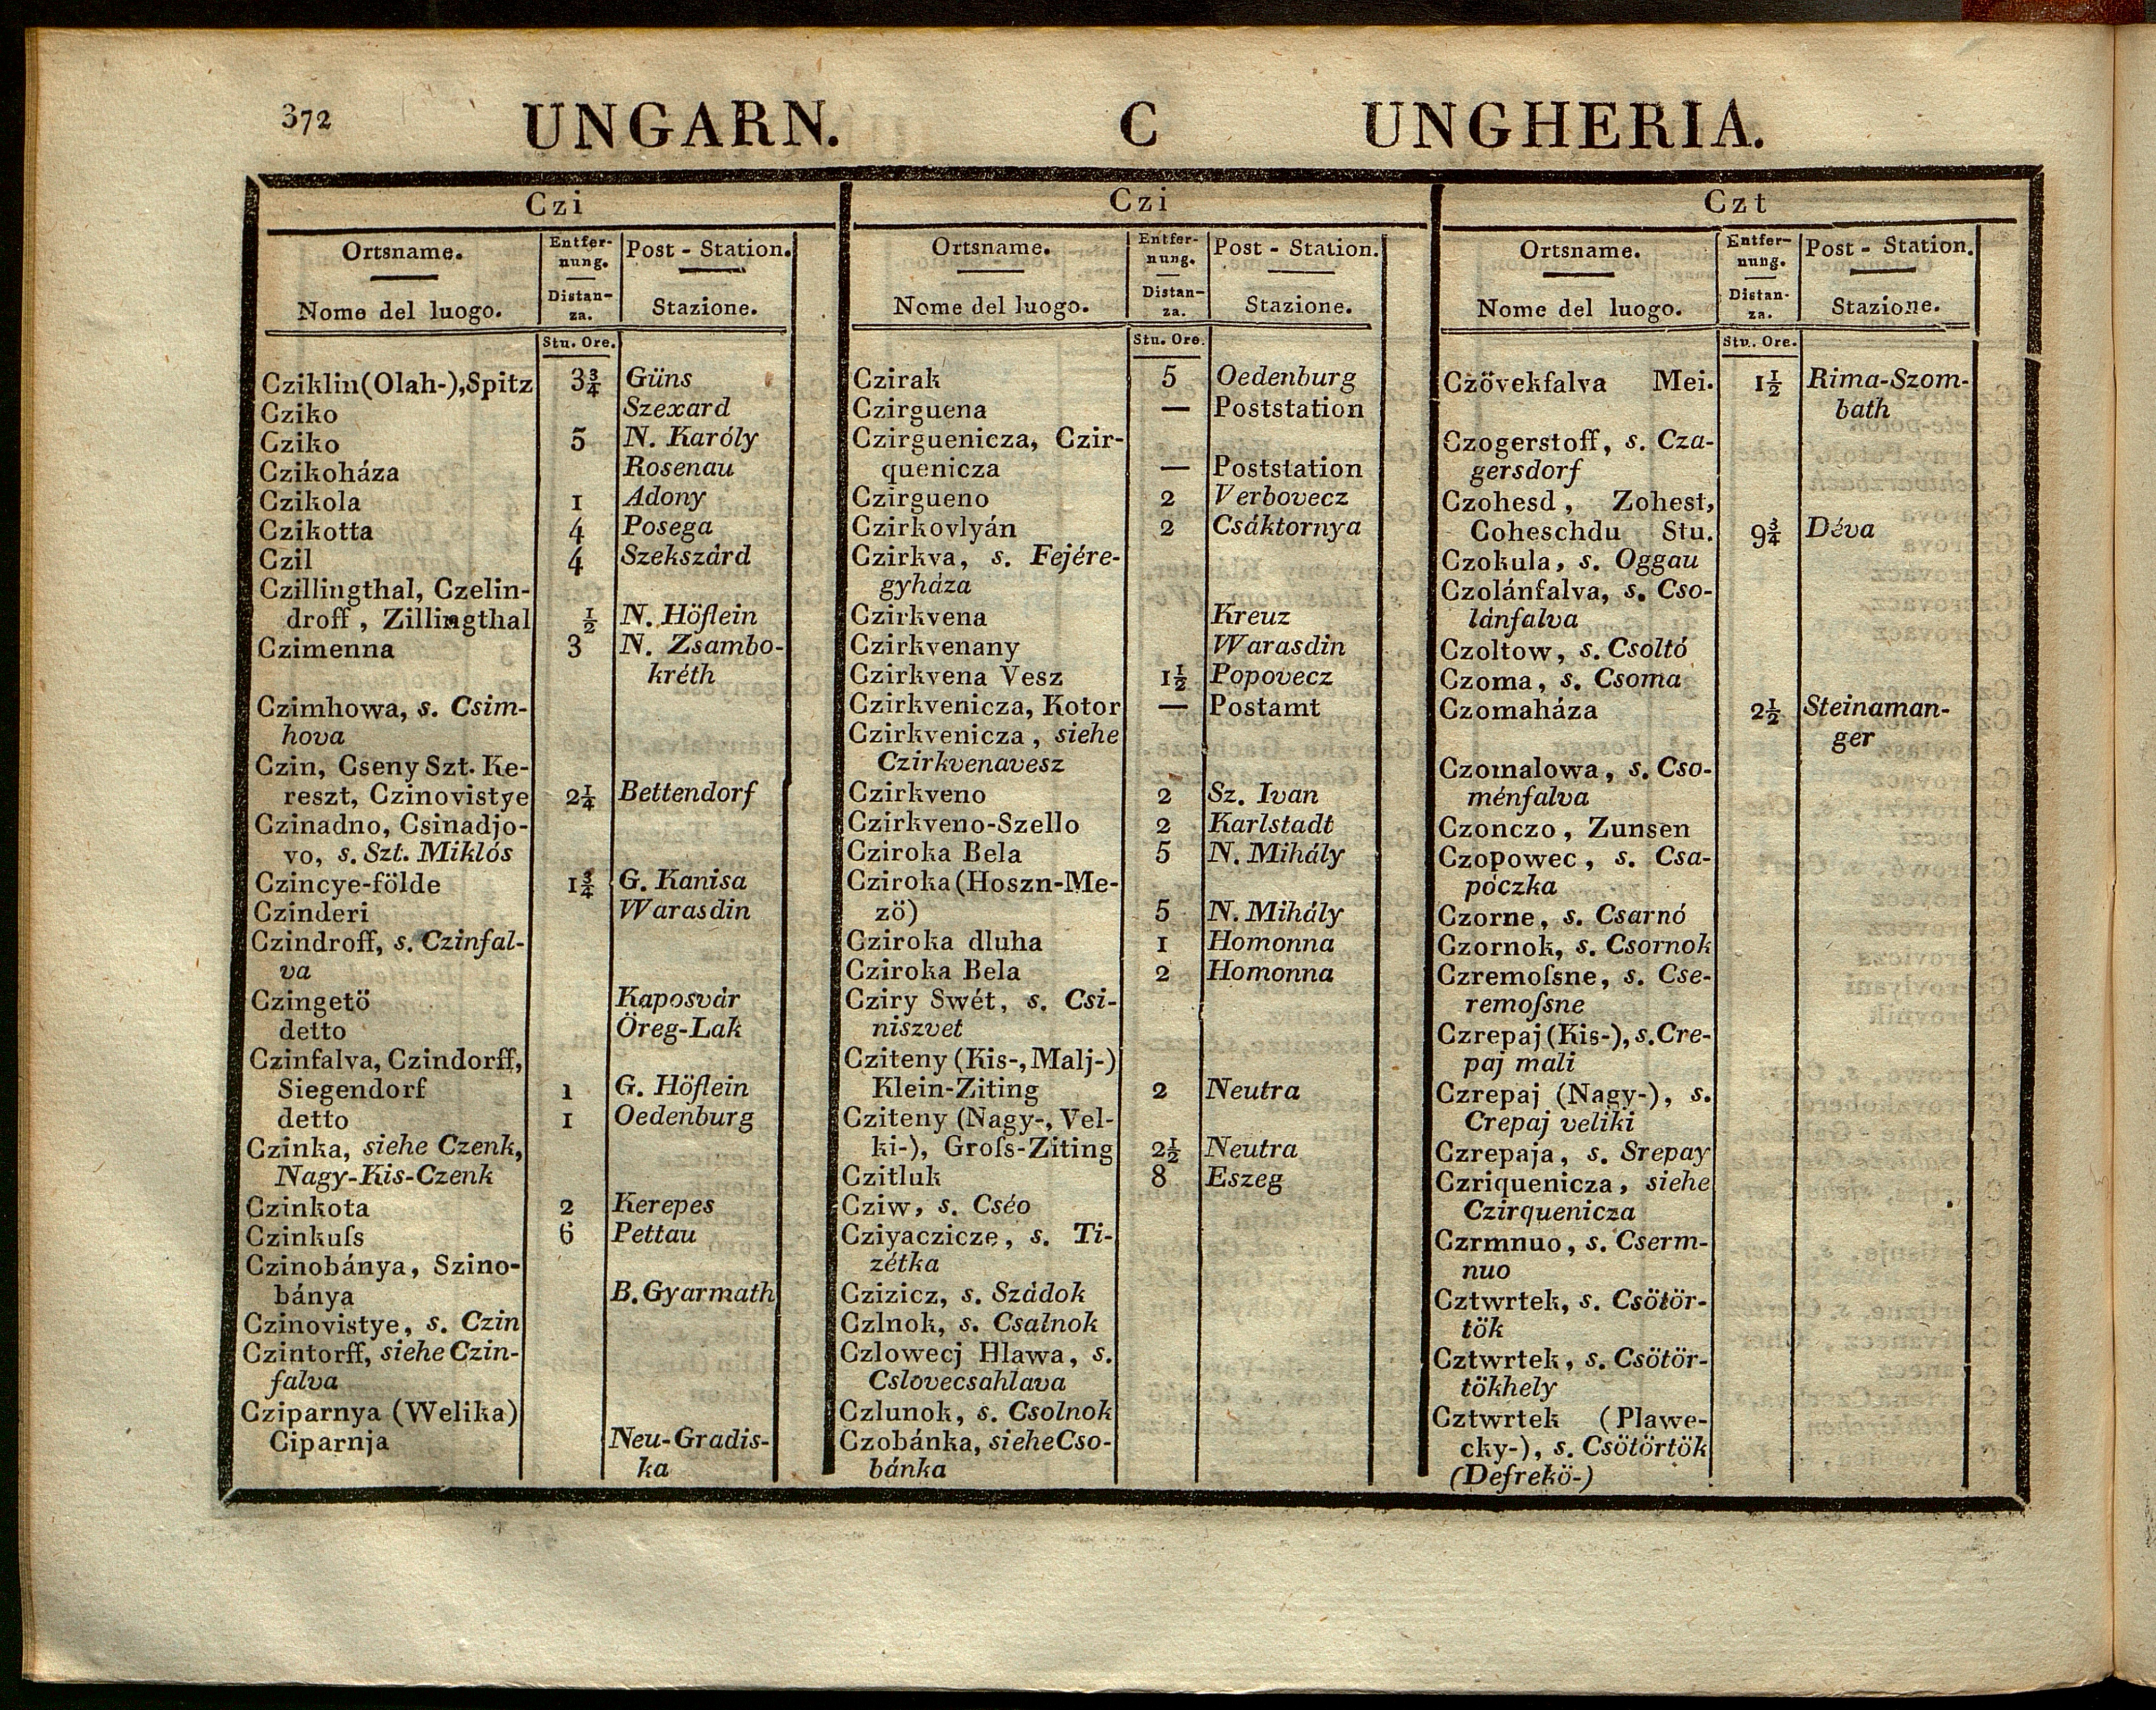 372 UNGARN. C UNGHERIA.
Czi
Ortsname. Entfer- Post - Station.
nung.
Nome del luogo. Distan- Stazione.
za.
Stu. Ore.
Cziklin(Olah-),Spitz 3¾ Güns
Cziko Szexard
Cziko 5 N. Károly
Czikoháza Rosenau
Czikola 1 Adony
Czikotta 4 Posega
Czil 4 Szekszárd
Czillingthal, Czelin-
droff, Zillingthal ½ N. Höflein
Czimenna 3 N. Zsambo-
kréth
Czimhowa, s. Csim-
hova
Czin, Cseny Szt. Ke-
reszt, Czinovistye 2¼ Bettendorf
Czinadno, Csinadjo-
vo, s. Szt. Miklós
Czincye-földe 1¾ G. Kanisa
Czinderi Warasdin
Czindroff, s. Czinfal-
va
Czingetö Kaposvár
detto Öreg-Lak
Czinfalva, Czindorff,
Siegendorf 1 G. Höflein
detto 1 Oedenburg
Czinka, siehe Czenk,
Nagy-Kis-Czenk
Czinkota 2 Kerepes
Czinkuſs 6 Pettau
Czinobánya, Szino-
bánya B. Gyarmath
Czinovistye, s. Czin
Czintorff, siehe Czin-
falva
Cziparnya (Welika)
Ciparnja Neu-Gradis-
ka
Czi
Ortsname. Entfer- Post - Station.
nung.
Nome del luogo. Distan- Stazione.
za.
Stu. Ore.
Czirak 5 Oedenburg
Czirguena — Poststation
Czirguenicza, Czir-
quenicza — Poststation
Czirgueno 2 Verbovecz
Czirkovlyán 2 Csáktornya
Czirkva, s. Fejére-
gyháza
Czirkvena Kreuz
Czirkvenany Warasdin
Czirkvena Vesz 1½ Popovecz
Czirkvenicza, Kotor — Postamt
Czirkvenicza, siehe
Czirkvenavesz
Czirkveno 2 Sz. Ivan
Czirkveno-Szello 2 Karlstadt
Cziroka Bela 5 N. Mihály
Cziroka (Hoszn-Me-
zö) 5 N. Mihály
Cziroka dluha 1 Homonna
Cziroka Bela 2 Homonna
Cziry Swét, s. Csi-
niszvet
Cziteny (Kis-, Malj-)
Klein-Ziting 2 Neutra
Cziteny (Nagy-, Vel-
ki-), Groſs-Ziting 2½ Neutra
Czitluk 8 Eszeg
Cziw, s. Cséo
Cziyaczicze, s. Ti-
zétka
Czizicz, s. Szádok
Czlnok, s. Csalnok
Czlowecj Hlawa, s.
Cslovecsahlava
Czlunok, s. Csolnok
Czobánka, siehe Cso-
bánka
Czt
Ortsname. Entfer- Post - Station.
nung.
Nome del luogo. Distan- Stazione.
za.
Stu. Ore.
Czövekfalva Mei. 1½ Rima-Szom-
bath
Czogerstoff, s. Cza-
gersdorf
Czohesd, Zohest,
Coheschdu Stu. 9¾ Déva
Czokula, s. Oggau
Czolánfalva, s. Cso-
lánfalva
Czoltow, s. Csoltó
Czoma, s. Csoma
Czomaháza 2½ Steinaman-
ger
Czomalowa, s. Cso-
ménfalva
Czonczo, Zunsen
Czopowec, s. Csa-
póczka
Czorne, s. Csarnó
Czornok, s. Csornok
Czremoſsne, s. Cse-
remoſsne
Czrepaj (Kis-), s. Cre-
paj mali
Czrepaj (Nagy-), s.
Crepaj veliki
Czrepaja, s. Srepay
Czriquenicza, siehe
Czirquenicza
Czrmnuo, s. Cserm-
nuo
Cztwrtek, s. Csötör-
tök
Cztwrtek, s. Csötör-
tökhely
Cztwrtek (Plawe-
cky-), s. Csötörtök
(Defrekö-)